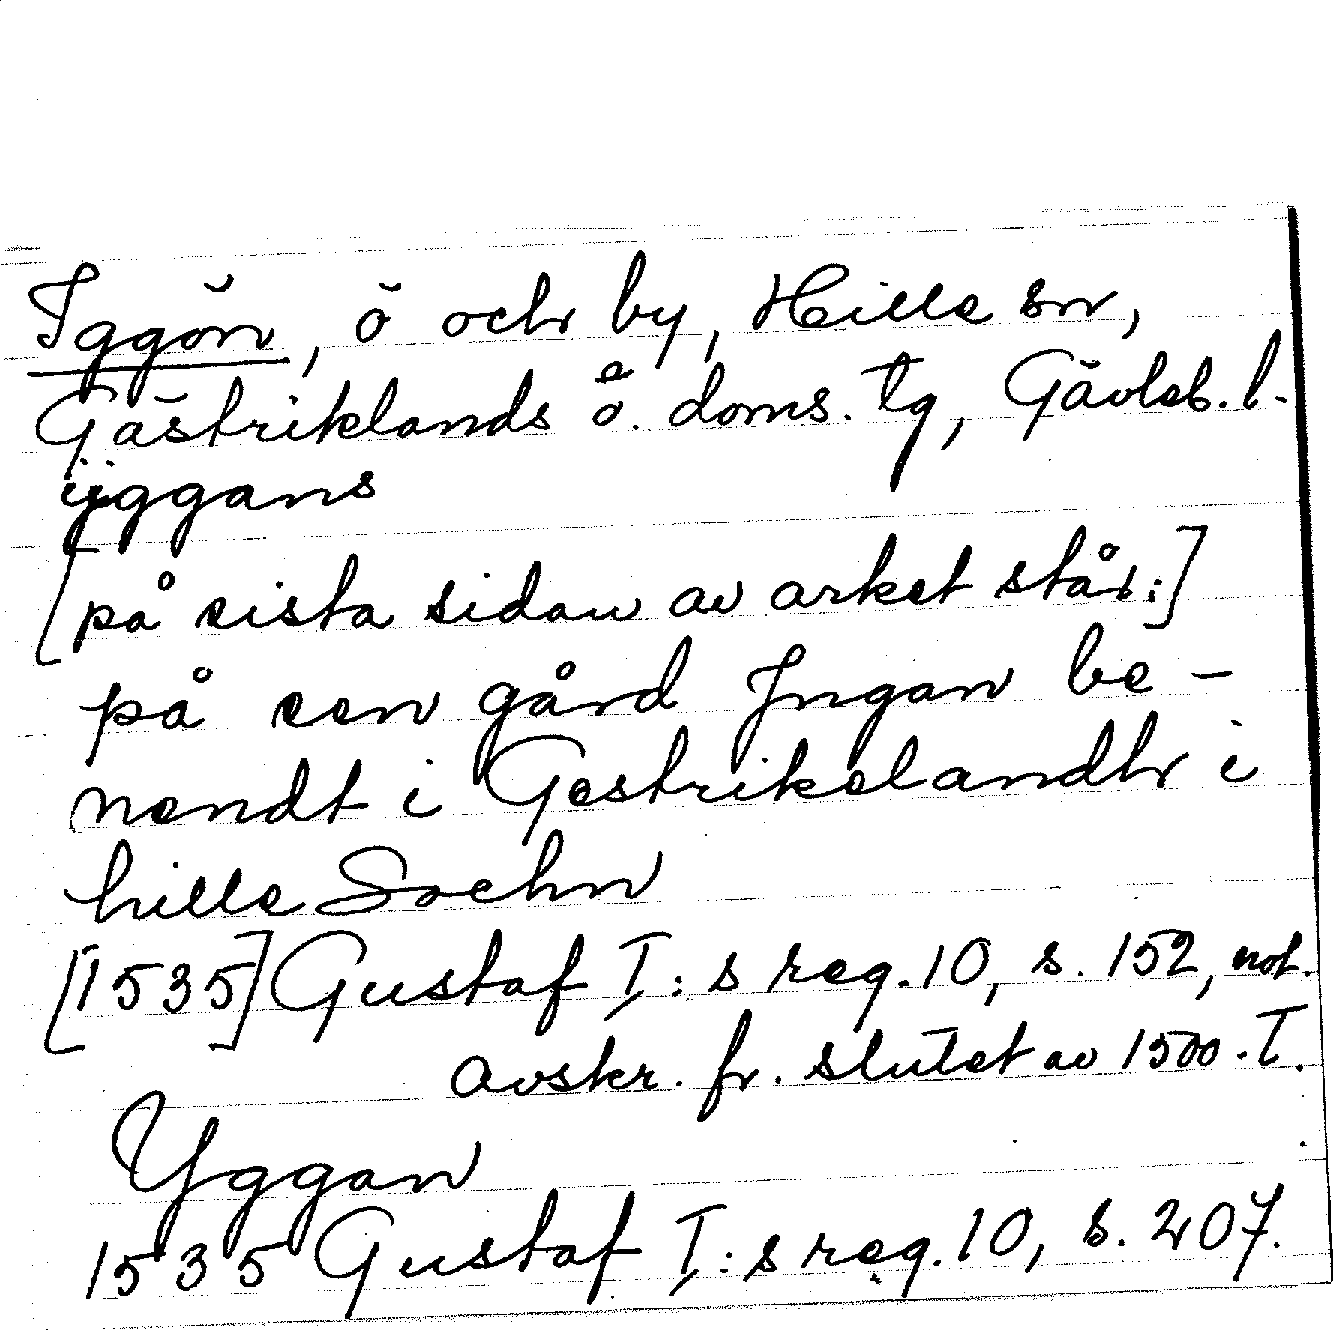 Iggön, ö och by, Hille sn,
Gästriklands ö. doms. tg, Gävleb. l.
ÿggans
[på sista sidan av arket står:]
på een gård Jngan be-
nendt i Gestrikelandh i
hille Sochn
[1535] Gustaf I:s reg. 10, s. 152, not.
avskr. fr. slutet av 1500-t.
Yggan
1535 Gustaf I:s reg. 10, s. 207.